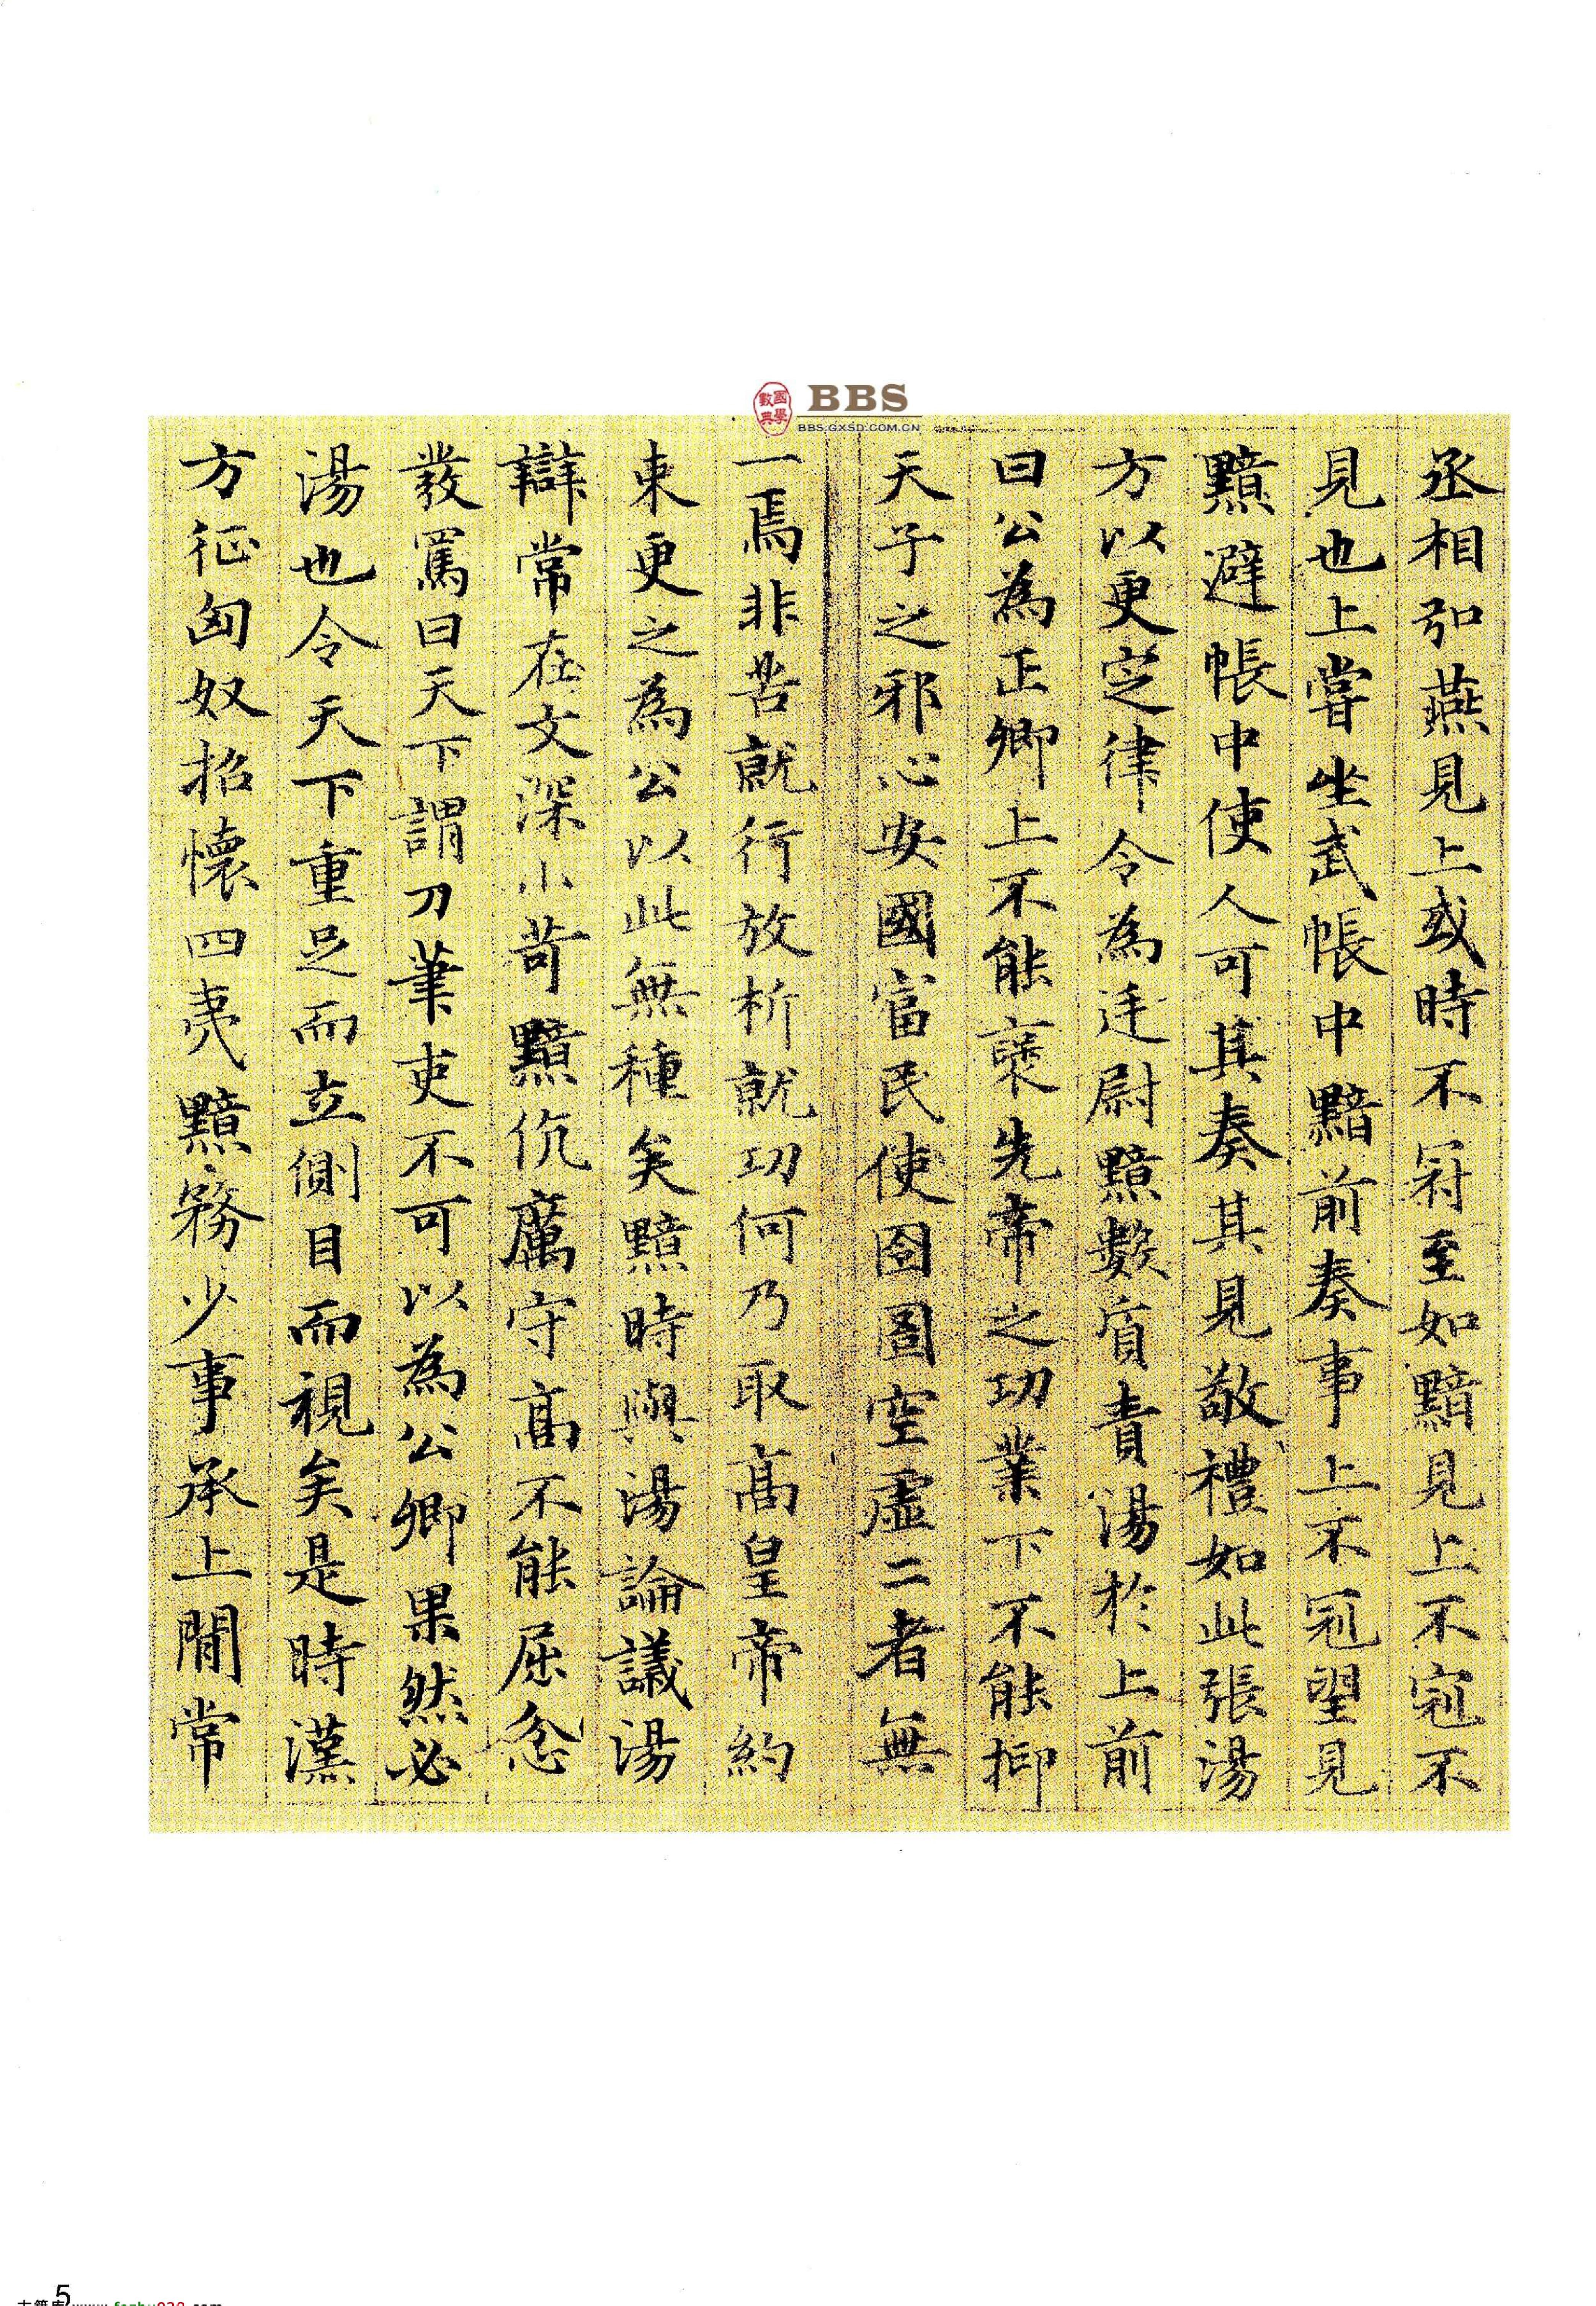 國學數典
BBS
BBS.GXSD.COM.CN
丞相弘燕見上或時不冠至如黯見上不冠不
見也上嘗坐武帳中黯前奏事上不冠望見
黯避帳中使人可其奏其見敬禮如此張湯
方以更定律令為廷尉黯數質責湯於上前
曰公為正卿上不能襃先帝之功業下不能抑
天子之邪心安國富民使囹圄空虛二者無
一焉非苦就行放析就功何乃取高皇帝約
束更之為公以此無種矣黯時與湯論議湯
辯常在文深小苛黯伉厲守高不能屈忿
發罵曰天下謂刀筆吏不可以為公卿果然必
湯也令天下重足而立側目而視矣是時漢
方征匈奴招懷四夷黯務少事承上閒常
5